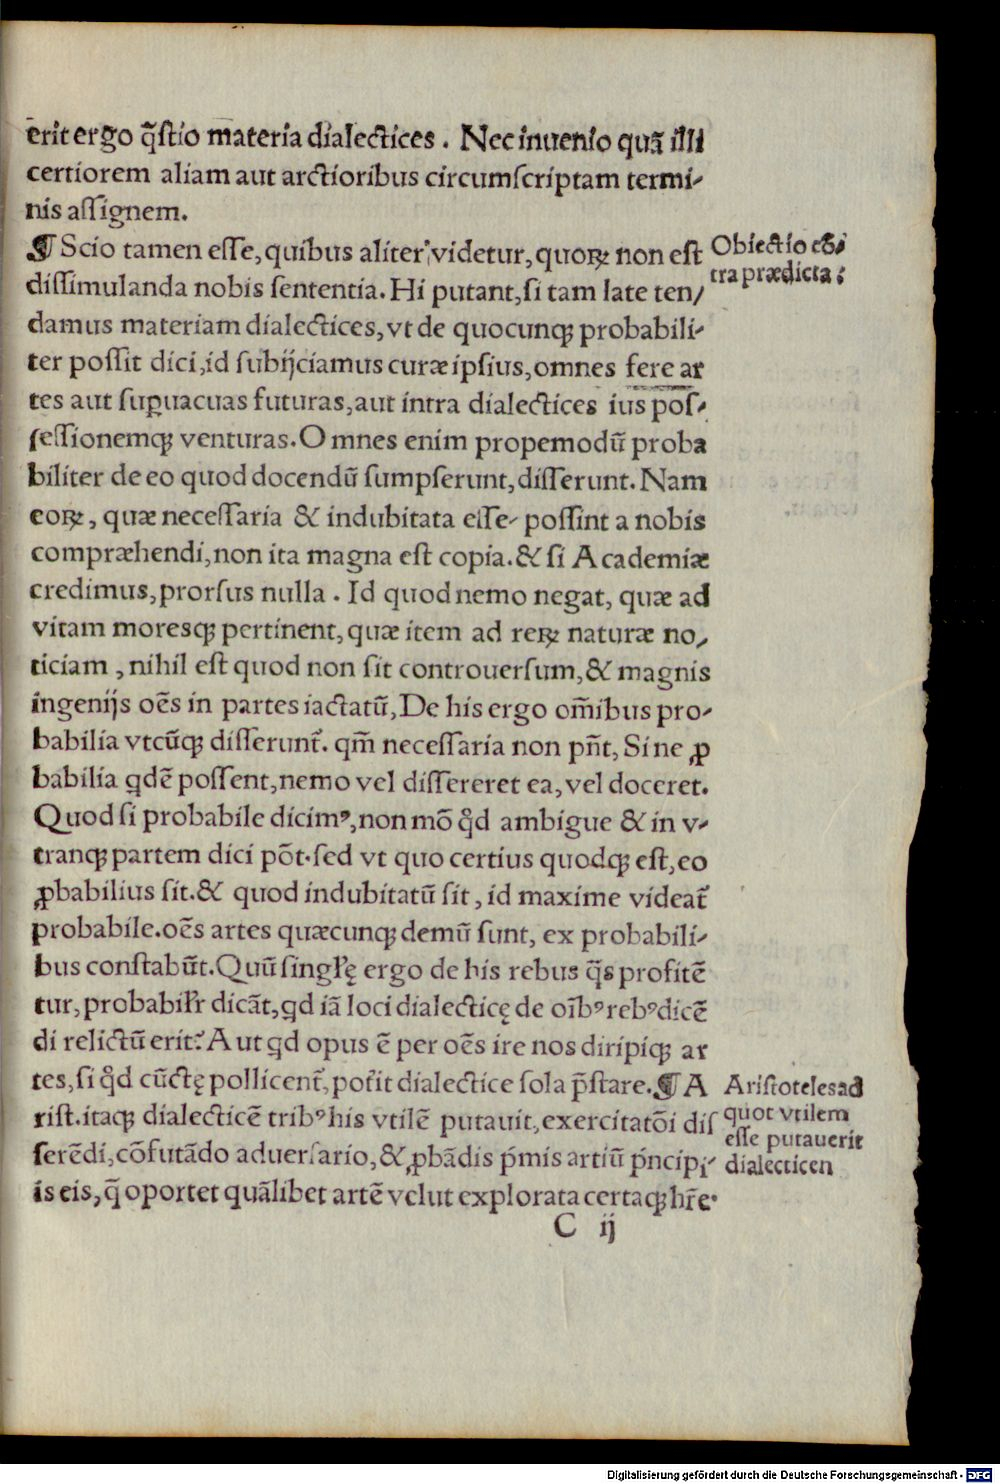 erit ergo q̃stio materia dialectices. Nec inuenio quã illi
certiorem aliam aut arctioribus circumſcriptam termi-
nis aſſignem.
¶ Scio tamen eſſe, quibus aliter videtur, quoꝝ non eſt
Obiectio cõ/
diſſimulanda nobis ſententia. Hi putant, ſi tam late ten/
tra prædicta:
damus materiam dialectices, vt de quocunqꝫ probabili-
ter poſſit dici, id ſubijciamus curæ ipſius, omnes fere ar
tes aut ſupuacuas futuras, aut intra dialectices ius poſ-
ſeſſionemqꝫ venturas. Omnes enim propemodũ proba
biliter de eo quod docendũ ſumpſerunt, diſſerunt. Nam
eoꝝ, quæ neceſſaria & indubitata eſſe poſſint a nobis
compræhendi, non ita magna eſt copia. & ſi Academiæ
credimus, prorſus nulla. Id quod nemo negat, quæ ad
vitam moresqꝫ pertinent, quæ item ad reꝝ naturæ no/
ticiam, nihil eſt quod non ſit controuerſum, & magnis
ingenijs oẽs in partes iactatũ, De his ergo om̃ibus pro-
babilia vtcũqꝫ diſſerunt᷑. qm̃ neceſſaria non pñt, Si ne ꝓ
babilia qdẽ poſſent, nemo vel diſſereret ea, vel doceret.
Quod ſi probabile dicimꝰ, non mõ qd̃ ambigue & in v-
tranqꝫ partem dici põt. ſed vt quo certius quodqꝫ eſt, eo
ꝓbabilius ſit. & quod indubitatũ ſit, id maxime videat᷑
probabile. oẽs artes quæcunqꝫ demũ ſunt, ex probabili-
bus conſtabũt. Quũ ſingłę ergo de his rebus q̃s profitẽ
tur, probabilr̃ dicãt, qd iã loci dialecticę de oĩbꝰ rebꝰ dicẽ
di relictũ erit? Aut qd opus ẽ per oẽs ire nos diripiqꝫ ar
tes, ſi qd̃ cũctę pollicent᷑, poťit dialectice ſola p̃ſtare. ¶ A
Ariſtoteles ad
riſt. itaqꝫ dialecticẽ tribꝰ his vtilẽ putauit, exercitatõi diſ
quot vtilem
eſſe putauerit
ſerẽdi, cõfutãdo aduerſario, & ꝓbãdis p̃mis artiũ p̃ncipi-
dialecticen
is eis, q̃ oportet quãlibet artẽ velut explorata certaqꝫ hr̃e.
C ij
Digitalisierung gefördert durch die Deutsche Forschungsgemeinschaft - DFG